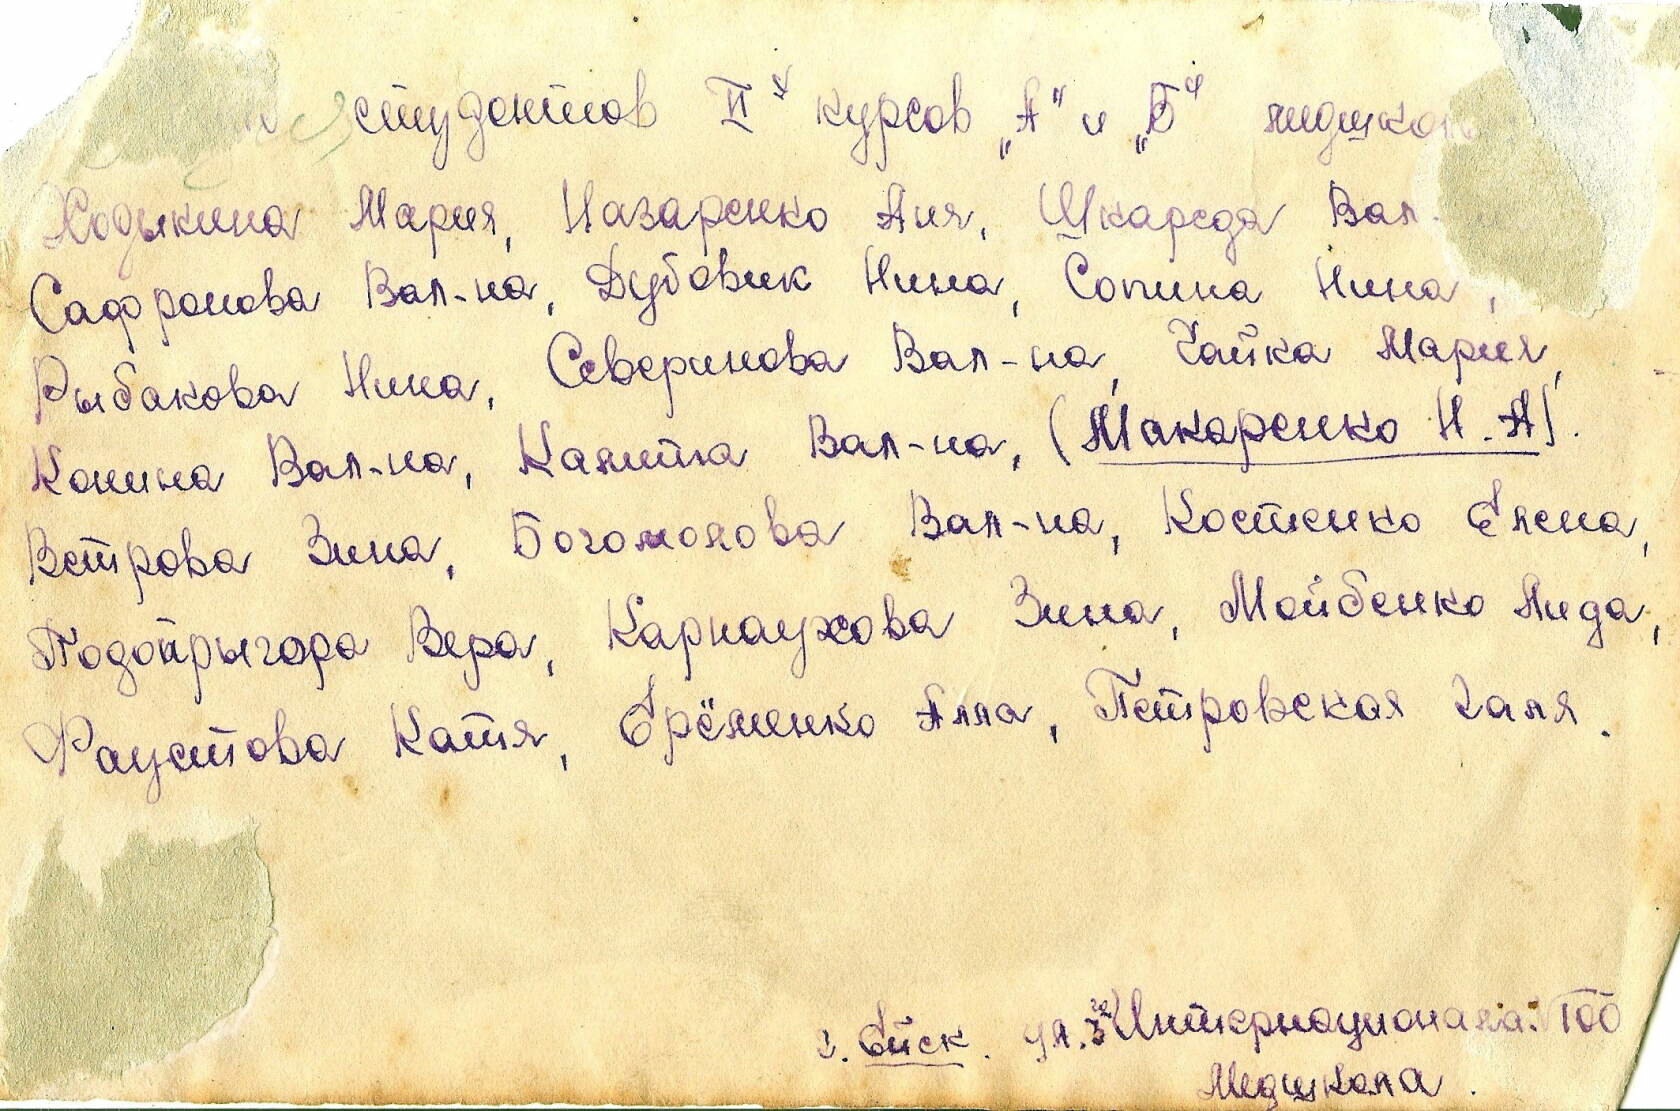 студентов II х курсов „А" и „Б" медшкол
Ходыкина Мария, Назаренко Аня, Шкареда Вал-
Сафронова Вал-на, Дубовик Нина, Сопина Нина,
Рыбакова Нина, Северинова Вал-на, Чайка Мария,
Конина Вал-на, Калита Вал-на, (Макаренко Н. А).
Ветрова Зина, Богомолова Вал-на, Костенко Елена,
Подопрыгора Вера, Карнаухова Зина, Мойбенко Лида,
Фаустова Катя, Ерёменко Алла, Петровская Галя.
г. Ейск. ул. 3го Интернационала. 100
Медшкола.